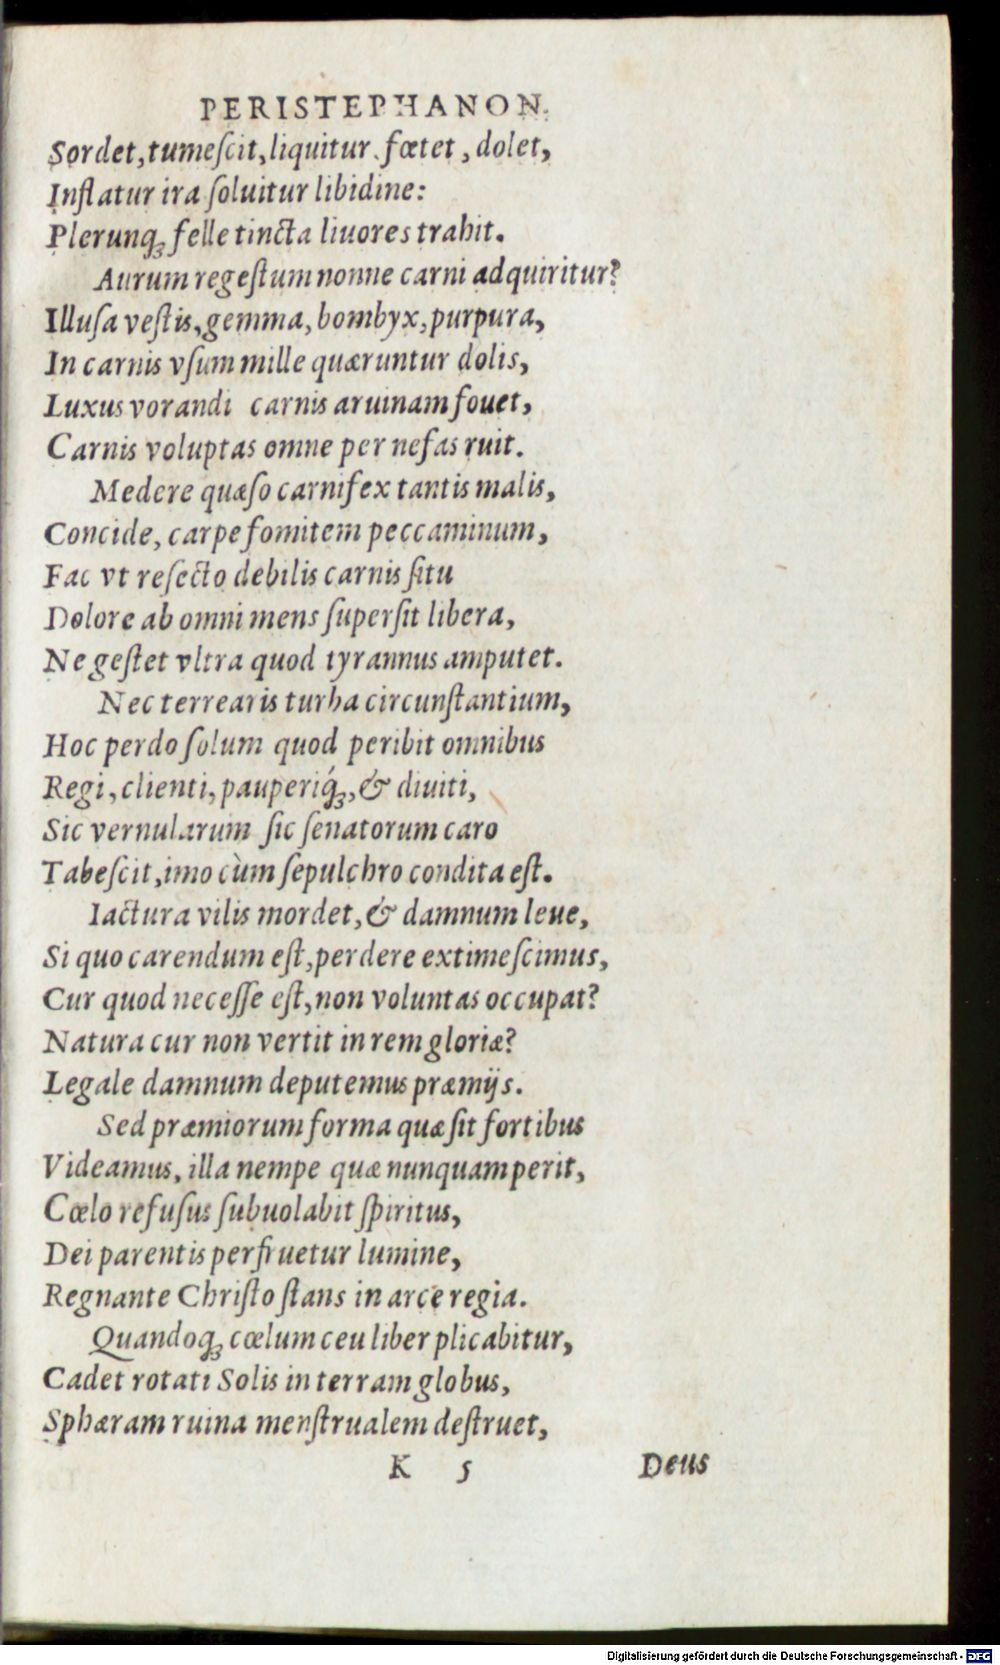 PERISTEPHANON.
Sordet, tumeſcit, liquitur, fœtet, dolet,
Inflatur ira ſoluitur libidine:
Plerunqꝫ felle tincta liuores trahit.
Aurum regeſtum nonne carni adquiritur?
Illuſa veſtis, gemma, bombyx, purpura,
In carnis vſum mille quæruntur dolis,
Luxus vorandi carnis aruinam fouet,
Carnis voluptas omne per nefas ruit.
Medere quæſo carnifex tantis malis,
Concide, carpe fomitem peccaminum,
Fac vt reſecto debilis carnis ſitu
Dolore ab omni mens ſuperſit libera,
Ne geſtet vltra quod tyrannus amputet.
Nec terrearis turba circunſtantium,
Hoc perdo ſolum quod peribit omnibus
Regi, clienti, pauperiq́ꝫ, & diuiti,
Sic vernularum ſic ſenatorum caro
Tabeſcit, imo cùm ſepulchro condita eſt.
Iactura vilis mordet, & damnum leue,
Si quo carendum eſt, perdere extimeſcimus,
Cur quod neceſſe eſt, non voluntas occupat?
Natura cur non vertit in rem gloriæ?
Legale damnum deputemus præmijs.
Sed præmiorum forma quæ ſit fortibus
Videamus, illa nempe quæ nunquam perit,
Cœlo refuſus ſubuolabit ſpiritus,
Dei parentis perfruetur lumine,
Regnante Chriſto ſtans in arce regia.
Quandoqꝫ cœlum ceu liber plicabitur,
Cadet rotati Solis in terram globus,
Sphæram ruina menſtrualem deſtruet,
K 5 Deus
Digitalisierung gefördert durch die Deutsche Forschungsgemeinschaft - DFG